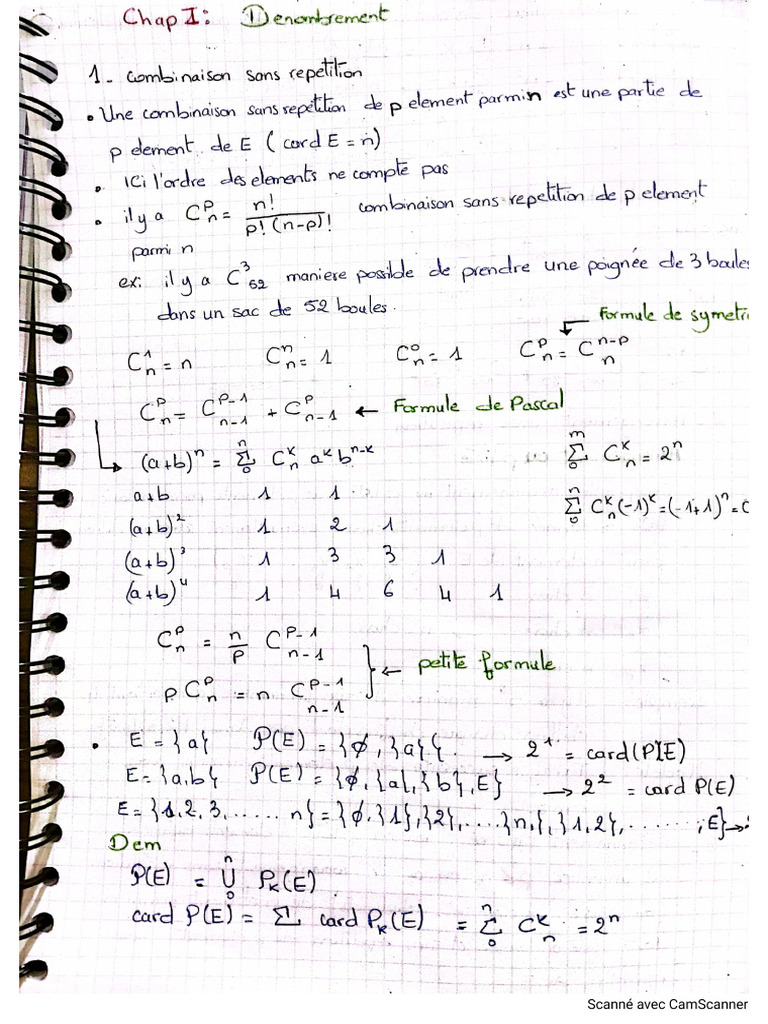 Chap I: Denombrement
1 - combinaison sans repetition
• Une combinaison sans repetition de p element parmi n est une partie de
p element de E ( card E = n)
• ICi l'ordre des elements ne compte pas
• il y a C_n^p = n! / p! (n-p)! combinaison sans repetition de p element
parmi n
ex: il y a C_52^3 maniere possible de prendre une poignée de 3 boules
dans un sac de 52 boules.
Formule de symetri
C_n^1 = n C_n^n = 1 C_n^0 = 1 C_n^p = C_n^{n-p}
C_n^p = C_{n-1}^{p-1} + C_{n-1}^p ← Formule de Pascal
(a+b)^n = Σ_0^n C_n^k a^k b^{n-k} Σ_0^m C_n^k = 2^n
a+b 1 1
Σ_0^n C_n^k (-1)^k = (-1+1)^n = 0
(a+b)^2 1 2 1
(a+b)^3 1 3 3 1
(a+b)^4 1 4 6 4 1
C_n^p = n/p C_{n-1}^{p-1}
← petite formule
p C_n^p = n C_{n-1}^{p-1}
• E = {a} P(E) = {∅, {a}}. → 2^1 = card(P(E)
E = {a,b} P(E) = {∅, {a}, {b}, E} → 2^2 = card P(E)
E = {1,2,3,......n} = {∅, {1}, {2},....{n,}, {1,2},.......; E} →
Dem
P(E) = ∪_0^n P_k(E)
card P(E) = Σ card P_k(E) = Σ_0^n C_n^k = 2^n
Scanné avec CamScanner